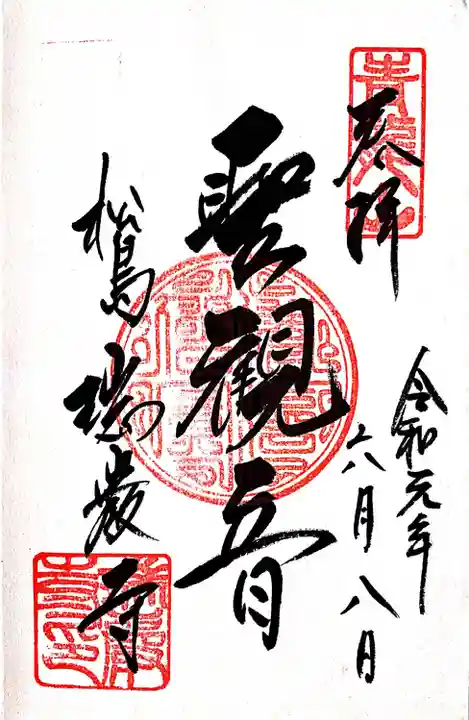 奉拝
令和元年
六月八日
聖観音
松島瑞巌寺